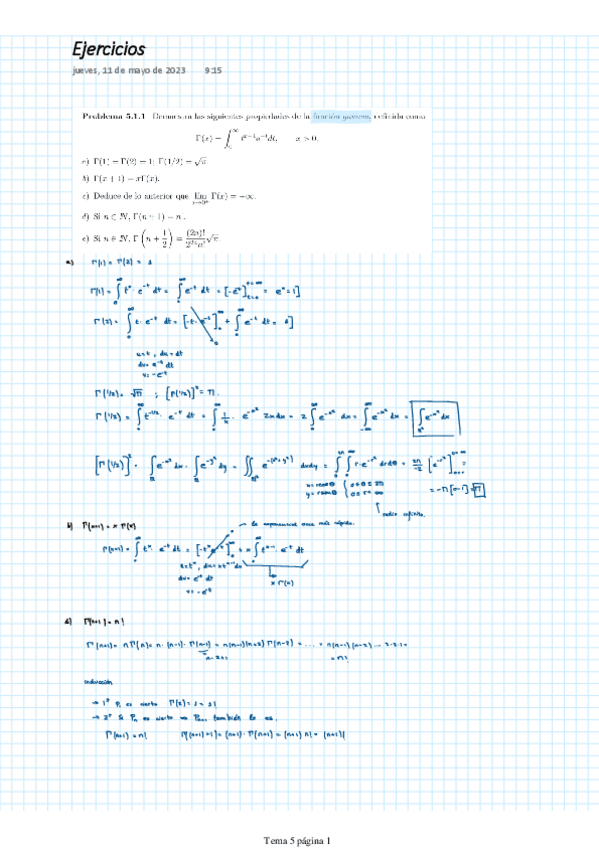 Ejercicios
jueves, 11 de mayo de 2023 9:15
Problema 5.1.1 Demuestra las siguientes propiedades de la función gamma, definida como
Γ(x) = ∫₀^∞ t^{x−1}e^{−t}dt, x > 0.
a) Γ(1) = Γ(2) = 1; Γ(1/2) = √π.
b) Γ(x + 1) = xΓ(x).
c) Deduce de lo anterior que lim_{x→0⁺} Γ(x) = +∞.
d) Si n ∈ ℕ, Γ(n + 1) = n!.
e) Si n ∈ ℕ, Γ(n + 1/2) = (2n)!/(2^{2n}n!) √π.
a) Γ(1) = Γ(2) = 1
Γ(1) = ∫₀^∞ t⁰ · e^{-t} dt = ∫₀^∞ e^{-t} dt = [-e^{-t}]_{t=0}^{t=∞} = e⁰ = 1]
Γ(2) = ∫₀^∞ t · e^{-t} dt = [-t · e^{-t}]₀^∞ + ∫₀^∞ e^{-t} dt = 1]
u=t, du=dt
dv= e^{-t} dt
v= -e^{-t}
Γ(1/2) = √π ; [Γ(1/2)]² = π.
Γ(1/2) = ∫₀^∞ t^{-1/2} · e^{-t} dt = ∫₀^∞ 1/x · e^{-x²} 2x dx = 2 ∫₀^∞ e^{-x²} dx = ∫_{-∞}^∞ e^{-x²} dx = ∫_ℝ e^{-x²} dx
[Γ(1/2)]² = ∫_ℝ e^{-x²} dx · ∫_ℝ e^{-y²} dy = ∬_{ℝ²} e^{-(x²+y²)} dxdy = ∫₀^{2π} ∫₀^∞ r · e^{-r²} drdθ = 2π/-2 [e^{-r²}]_{r=0}^{r=∞} =
x= r cos θ { 0 ≤ θ ≤ 2π
y= r sen θ 0 ≤ r < ∞
= -π [0-1] = π
radio infinito.
b) Γ(x+1) = x Γ(x)
la exponencial crece más rápido.
Γ(x+1) = ∫₀^∞ t^x · e^{-t} dt = [-t^x e^{-t}]₀^∞ + x ∫₀^∞ t^{x-1} · e^{-t} dt
u=t^x, du= x t^{x-1} dx
dv= e^{-t} dt
x Γ(x)
v= -e^{-t}
d) Γ(n+1) = n!
Γ(n+1) = n Γ(n) = n · (n-1) · Γ(n-1) = n(n-1)(n-2) Γ(n-2) = ... = n(n-1)(n-2) ... 3·2·1 =
n-2+1
= n!
inducción
→ 1º P₁ es cierto Γ(2) = 1 = 1!
→ 2º Si Pₙ es cierto ⇒ Pₙ₊₁ también lo es.
Γ(n+1) = n! Γ((n+1)+1) = (n+1) · Γ(n+1) = (n+1) n! = (n+1)!
Tema 5 página 1